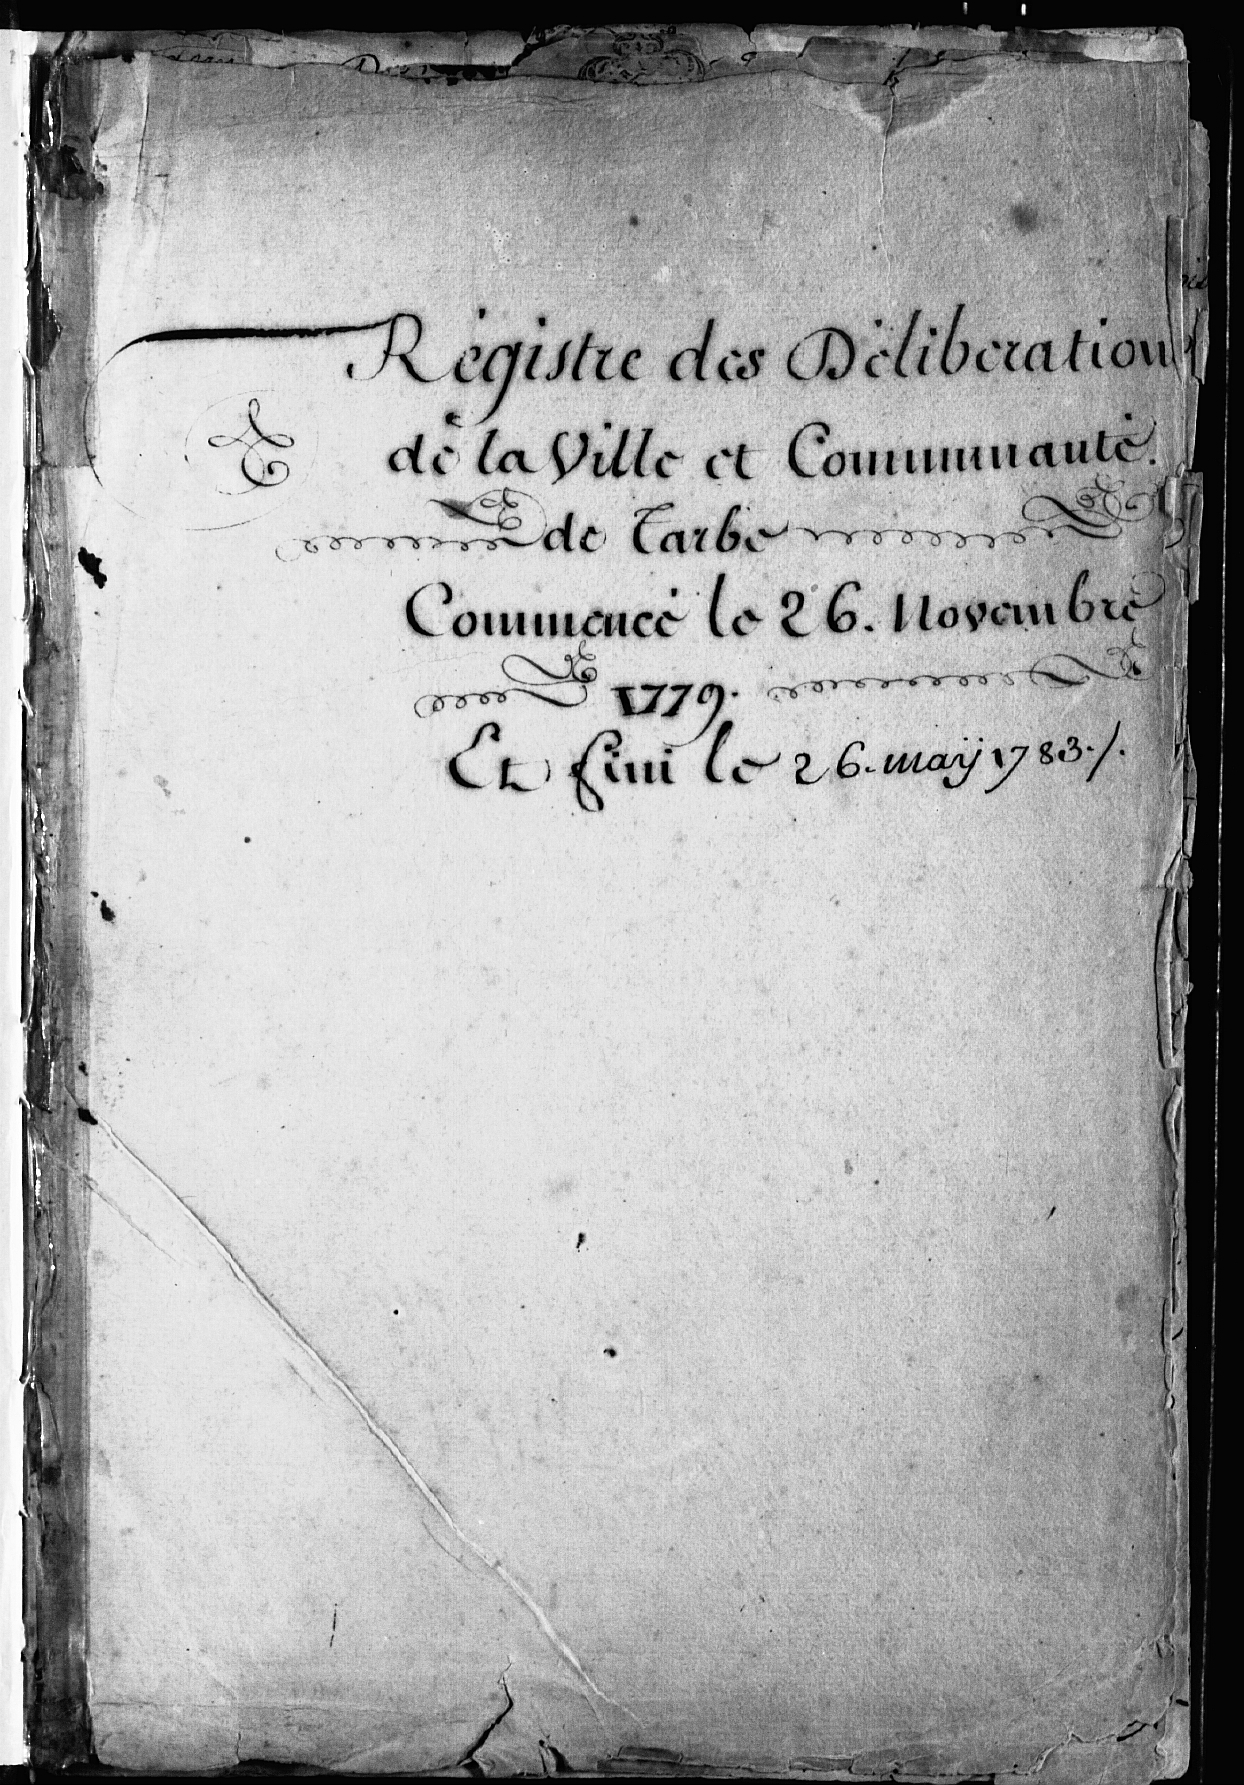 Régistre des Déliberation
dè la Ville et Communauté.
de Tarbe
Commencé le 26. Novembre
1779.
Et fini le 26. maÿ 1783./.